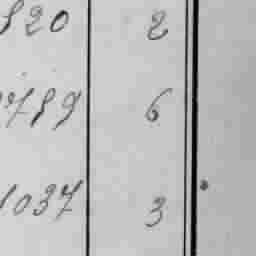 820 2
789 6
1037 3